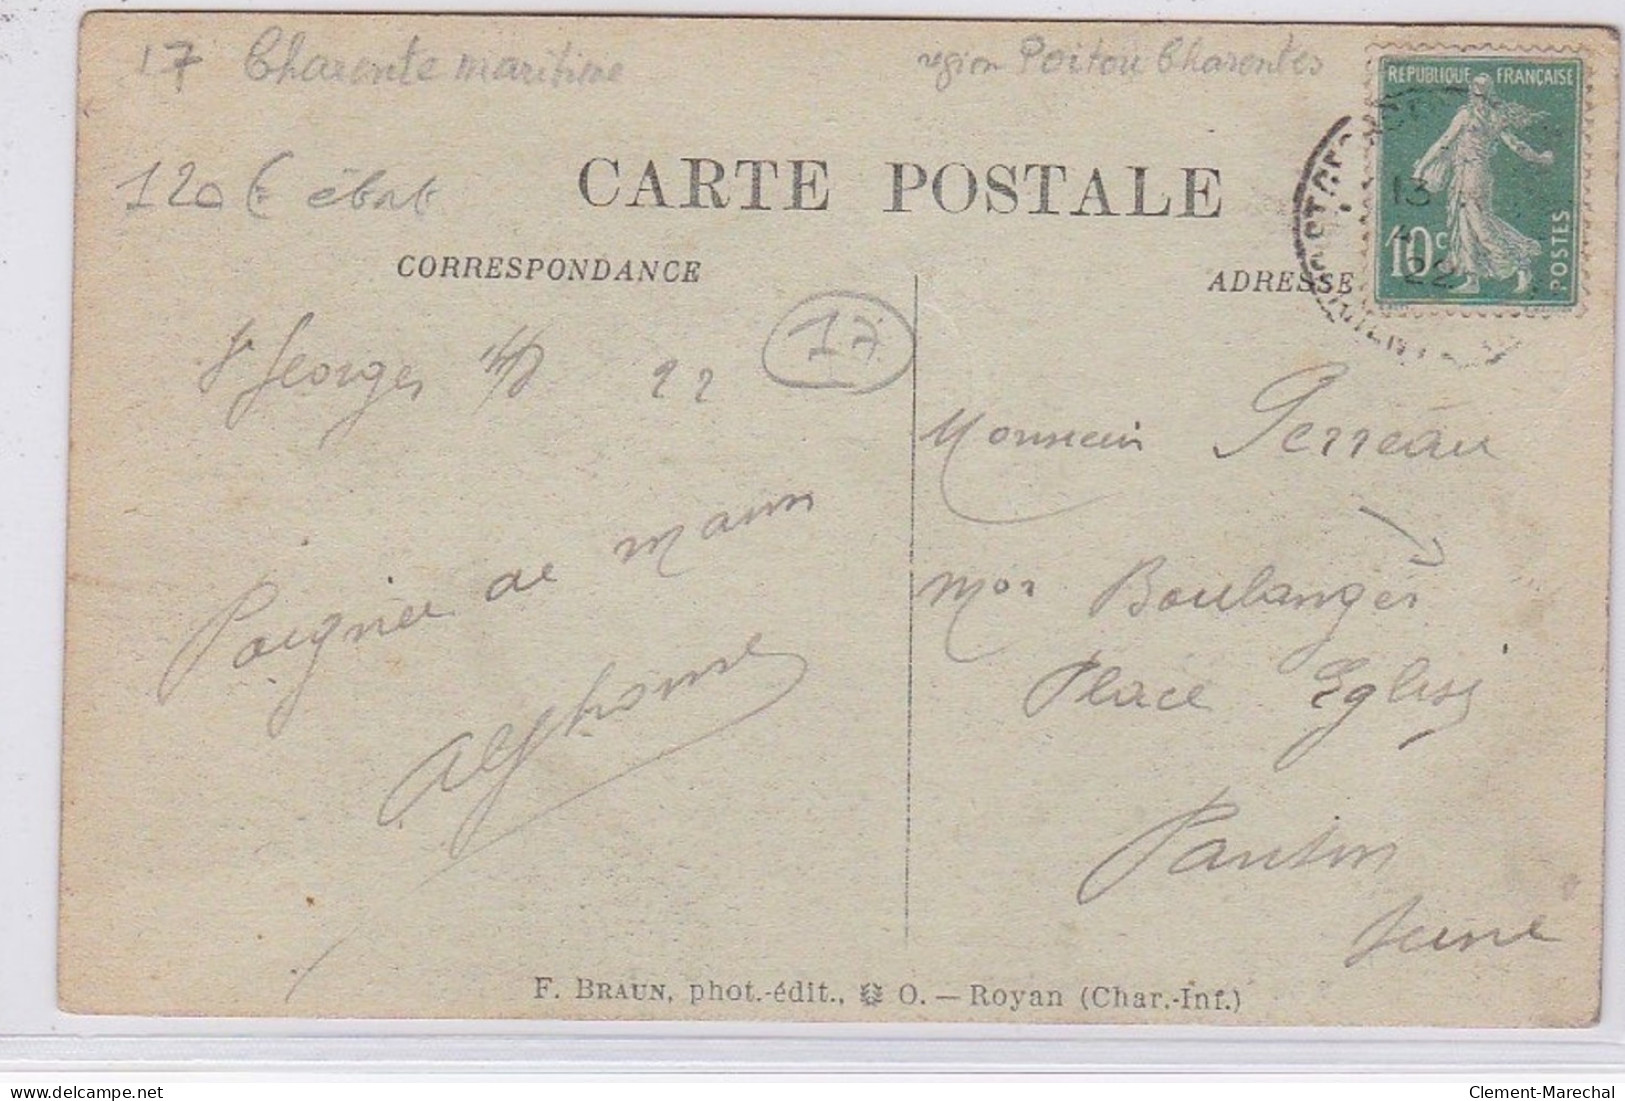 17 Charente maritime
region Poitou Charentes
120 € état
CARTE POSTALE
CORRESPONDANCE
ADRESSE
REPUBLIQUE FRANÇAISE
10c
POSTES
13
22
St Georges
22
17
Monsieur Perreau
Poignée de main
Alphonse
Mon Boulanger
Place Eglise
Pantin
Seine
F. BRAUN, phot.-édit., O. — Royan (Char.-Inf.)
delcampe.net
Clement-Marechal